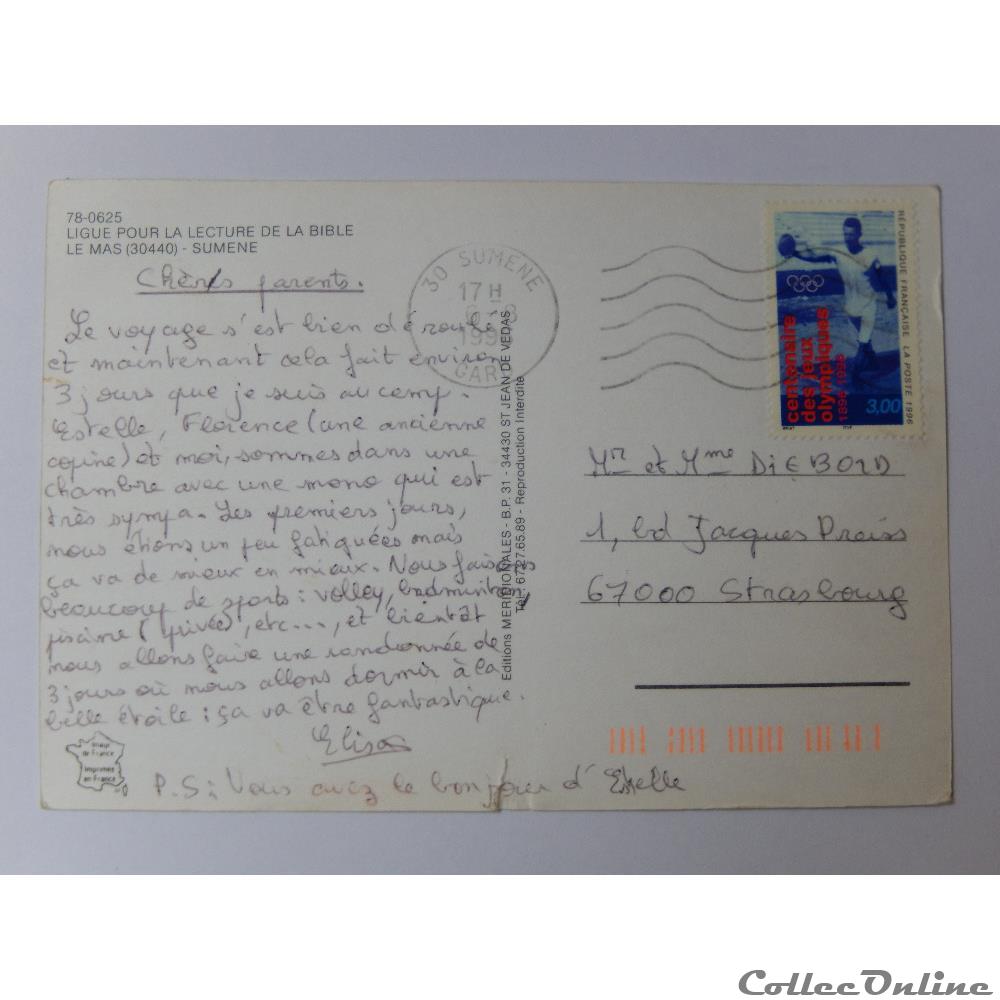 78-0625
LIGUE POUR LA LECTURE DE LA BIBLE
LE MAS (30440) - SUMENE
Chers parents.
Le voyage s'est bien déroulé
et maintenant cela fait environ
3 jours que je suis au camp.
Estelle, Florence (une ancienne
copine) et moi, sommes dans une
chambre avec une mono qui est
très sympa. Les premiers jours,
nous étions un peu fatiguées mais
ça va de mieux en mieux. Nous faisons
beaucoup de sports : volley, badminton,
piscine (privée), etc..., et bientôt
nous allons faire une randonnée de
3 jours où nous allons dormir à la
belle étoile : ça va être fantastique.
Elisa
P.S : Vous avez le bonjour d'Estelle
Image
de France
Imprimée
en France
Editions MERIDIONALES - B.P. 31 - 34430 ST JEAN DE VEDAS
Tél. 67.27.65.89 - Reproduction Interdite
30 SUMENE
17 H
199
GARD
RÉPUBLIQUE FRANÇAISE LA POSTE 1996
centenaire
des jeux
olympiques
1896-1996
3,00
Mr et Mme DIEBOLD
1, bd Jacques Preiss
67000 Strasbourg
CollecOnline